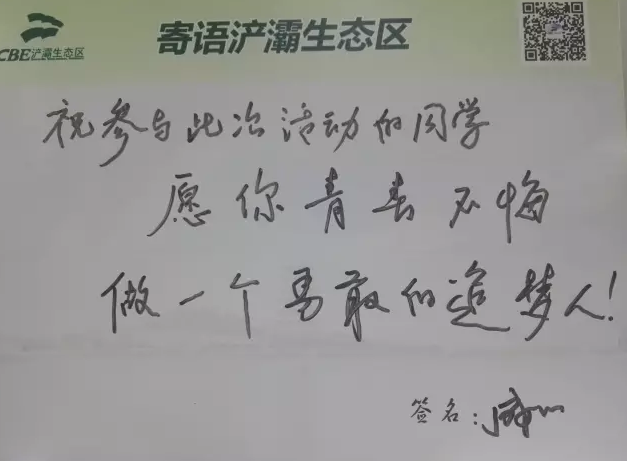 CBE浐灞生态区
寄语浐灞生态区
祝参与此次活动的同学
愿你青春不悔
做一个勇敢的追梦人!
签名: